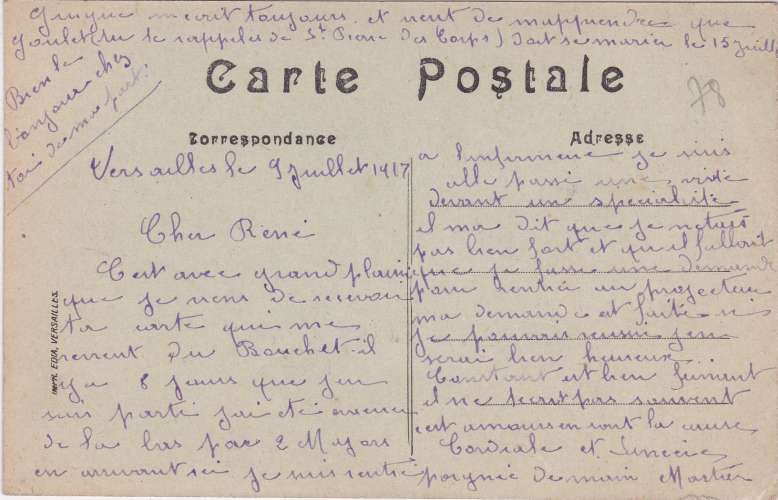 Gringue m'écrit toujours et vient de m'apprendre que
Goulet (tu te rappelles de St Pierre des Corps) doit se marier le 15 juillet
Bien le
bonjour chez
toi de ma part.
Carte Postale
78
Correspondance
Adresse
Versailles le 9 Juillet 1917
Cher René
C'est avec grand plaisir
que je viens de recevoir
ta carte qui me
revient du Bouchet. il
y a 8 jours que j'en
suis parti j'ai été évacué
de la bas par 2 Majors
en arrivant ici je suis rentré
a l'infirmerie je suis
allé passé une visite
devant un spécialiste
il m'a dit que je n'étais
pas bien fort et qu'il fallait
que je fasse une demande
pour rentrer au projecteur
ma demande est faite si
je pouvais réussir j'en
serai bien heureux.
Constant est bien feignant
il ne t'écrit pas souvent
c'est amours en sont la cause
Cordiale et Sincère
poignée de main Mestier
IMPR. EDIA, VERSAILLES.